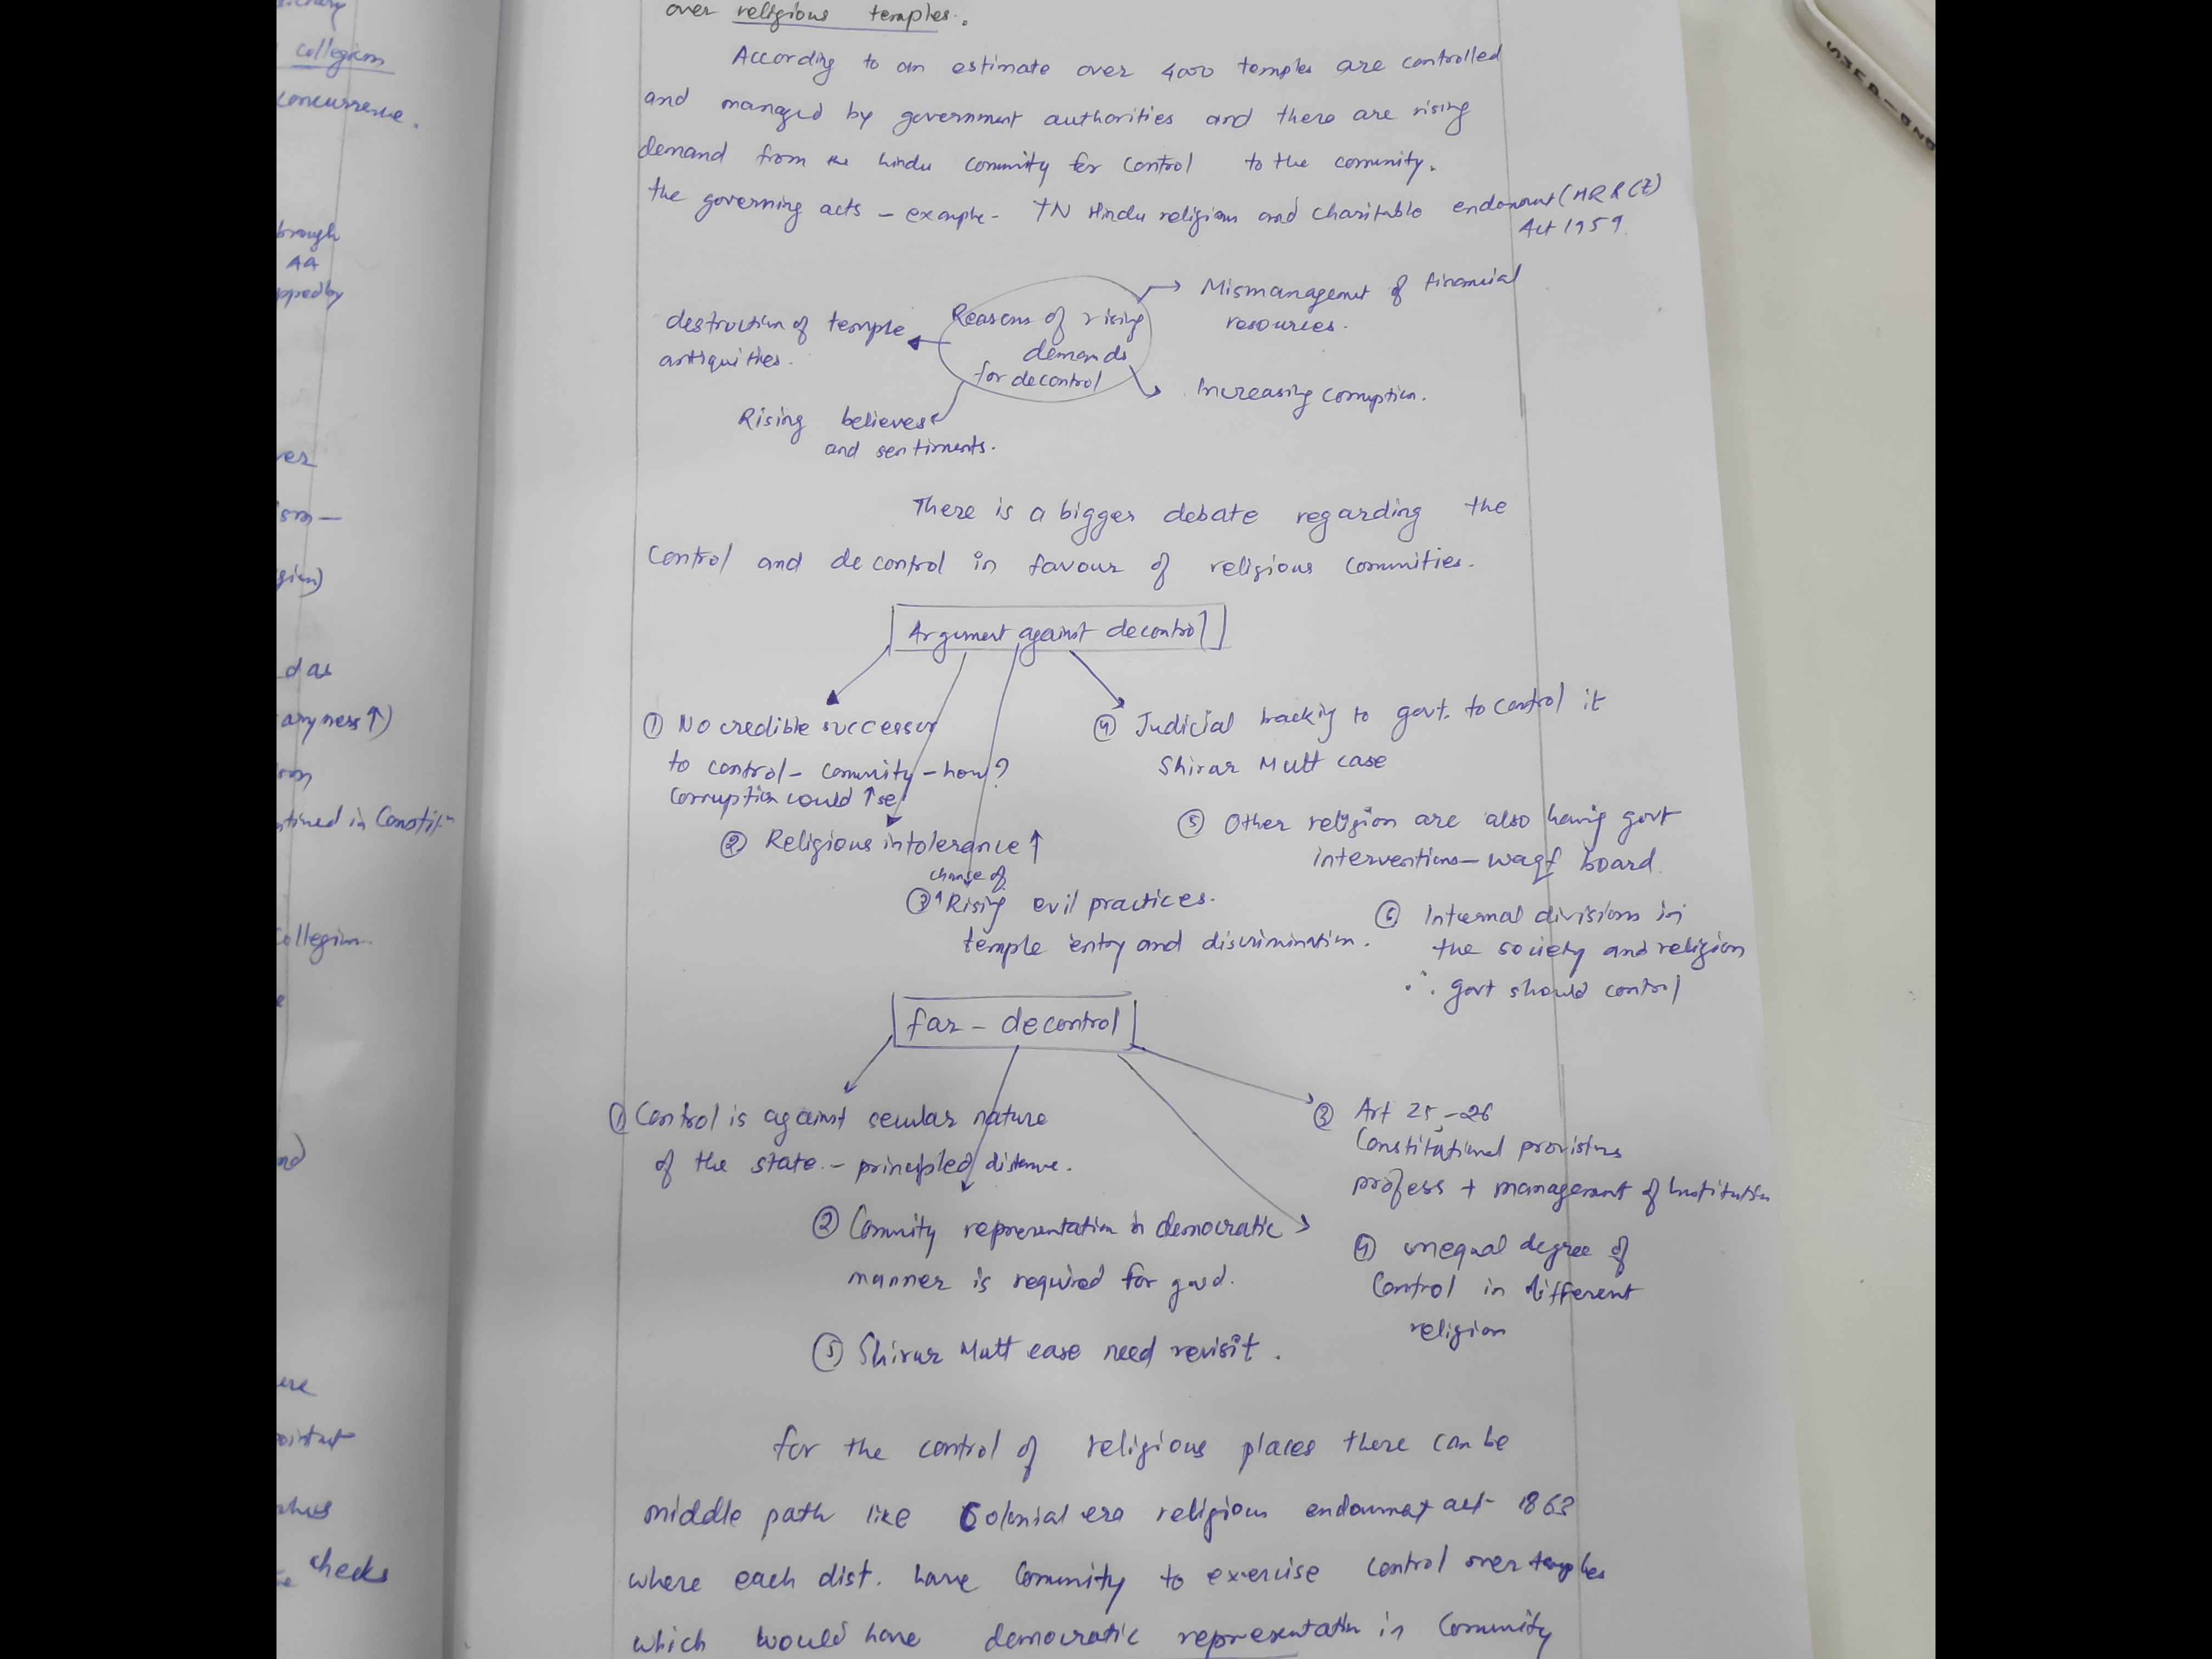 over religious temples.
According to an estimate over 4000 temples are controlled
and managed by government authorities and there are rising
demand from the hindu comunity for control to the comunity.
the governing acts - example - TN Hindu religious and charitable endowment (HR&CE)
Act 1959.
Reasons of rising
demands
for decontrol
Mismanagement of financial
resources.
Increasing corruption.
destruction of temple
antiquities.
Rising believes
and sentiments.
There is a bigger debate regarding the
control and decontrol in favour of religious comunities.
Argument against decontrol
① No credible successor
to control - comunity - how?
corruption could ↑se
② Religious intolerance ↑
chance of
③ Rising evil practices.
temple entry and discrimination.
④ Judicial backing to govt. to control it
Shirur Mutt case
⑤ Other religion are also having govt
interventions - waqf board.
⑥ Internal divisions in
the society and religion
∴ govt should control
for - decontrol
① Control is against secular nature
of the state - principled distance.
② Comunity representation in democratic
manner is required for good.
③ Art 25-26
Constitutional provisions
profess + management of Institution
④ unequal degree of
control in different
religion
⑤ Shirur Mutt case need revisit.
for the control of religious places there can be
middle path like Colonial era religious endowment act - 1863
where each dist. have Comunity to exercise control over temples
which would have democratic representation in Comunity
collegium
concurrence.
AA
d as
aryness ↑)
collegium
checks